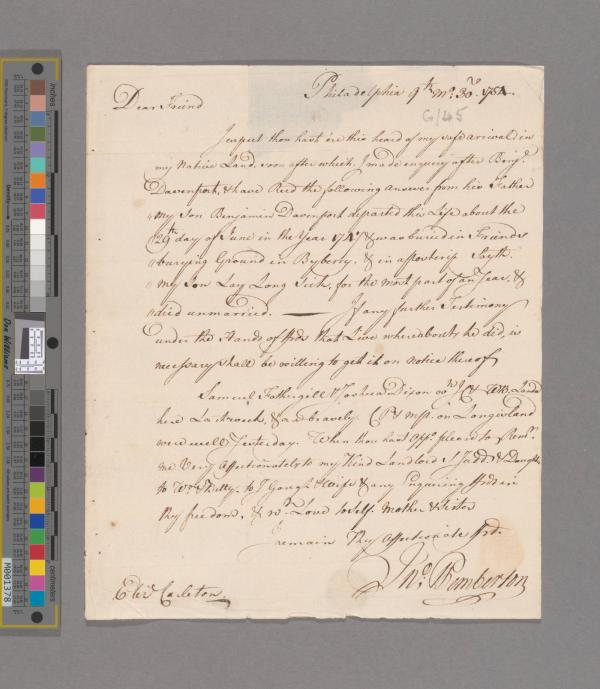 Philadelphia 9th mo. 30th 1754.
G/45
Dear Friend
I expect thou hast ere this heard of my safe arrival in
my Native Land. soon after which I made enquiry after Benjn.
Davenport, & have Recd the following Answer from his Father
"my Son Benjamin Davenport departed this Life about the
"29th day of June in the Year 1747 & was buried in Friends
"burying Ground in Byberry. & in a postscrip Sayth.
"my Son Lay Long Sick, for the most part of an Year, &
"died unmarried. — If any further Testimony
under the Hands of ffrds that Live whereabouts he did, is
necessary shall be willing to get it on notice thereof
Samuel Fothergill & Joshua Dixon wth
here Last week, & are bravely. on Longisland
were well Yesterday. When thou hast oppy. please to Remr.
me Very Affectionately to my Kind Landlord J Judd & Daughr
to Wm to J Gough & Wife & any Enquiring ffrds in
thy freedom, & wth Love to Self. Mother & Sister
I remain Thy Affectionate ffrd.
Jno. Pemberton
Eler. Carleton
M001378
Don Williams
inches
centimetres